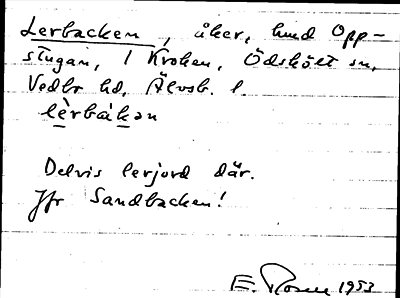 Lerbacken, åker, hund Opp-
stugan, 1 Kroken, Ödskölt sn,
Vedbo hd, Älvsb. l.
lèrbákən
Delvis lerjord där.
Jfr Sandbacken!
E. Rosen 1953